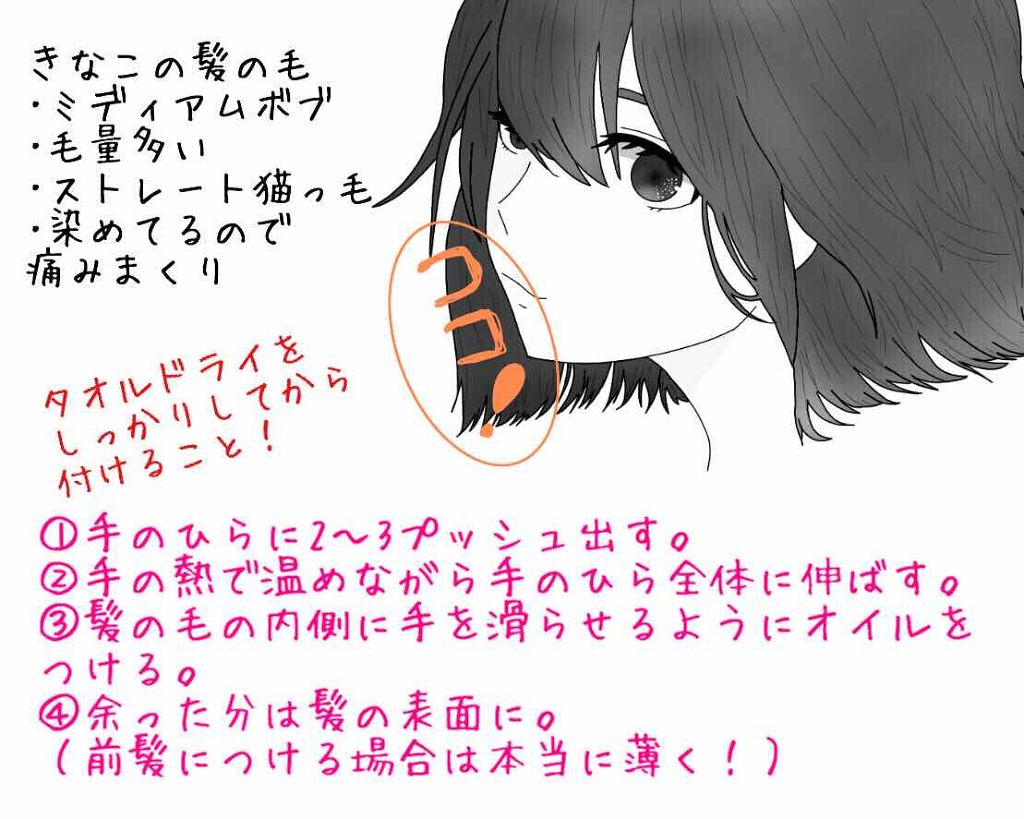 きなこの髪の毛
・ミディアムボブ
・毛量多い
・ストレート猫っ毛
・染めてるので
痛みまくり
ココ!
タオルドライを
しっかりしてから
付けること!
①手のひらに2〜3プッシュ出す。
②手の熱で温めながら手のひら全体に伸ばす。
③髪の毛の内側に手を滑らせるようにオイルを
つける。
④余った分は髪の表面に。
(前髪につける場合は本当に薄く!)